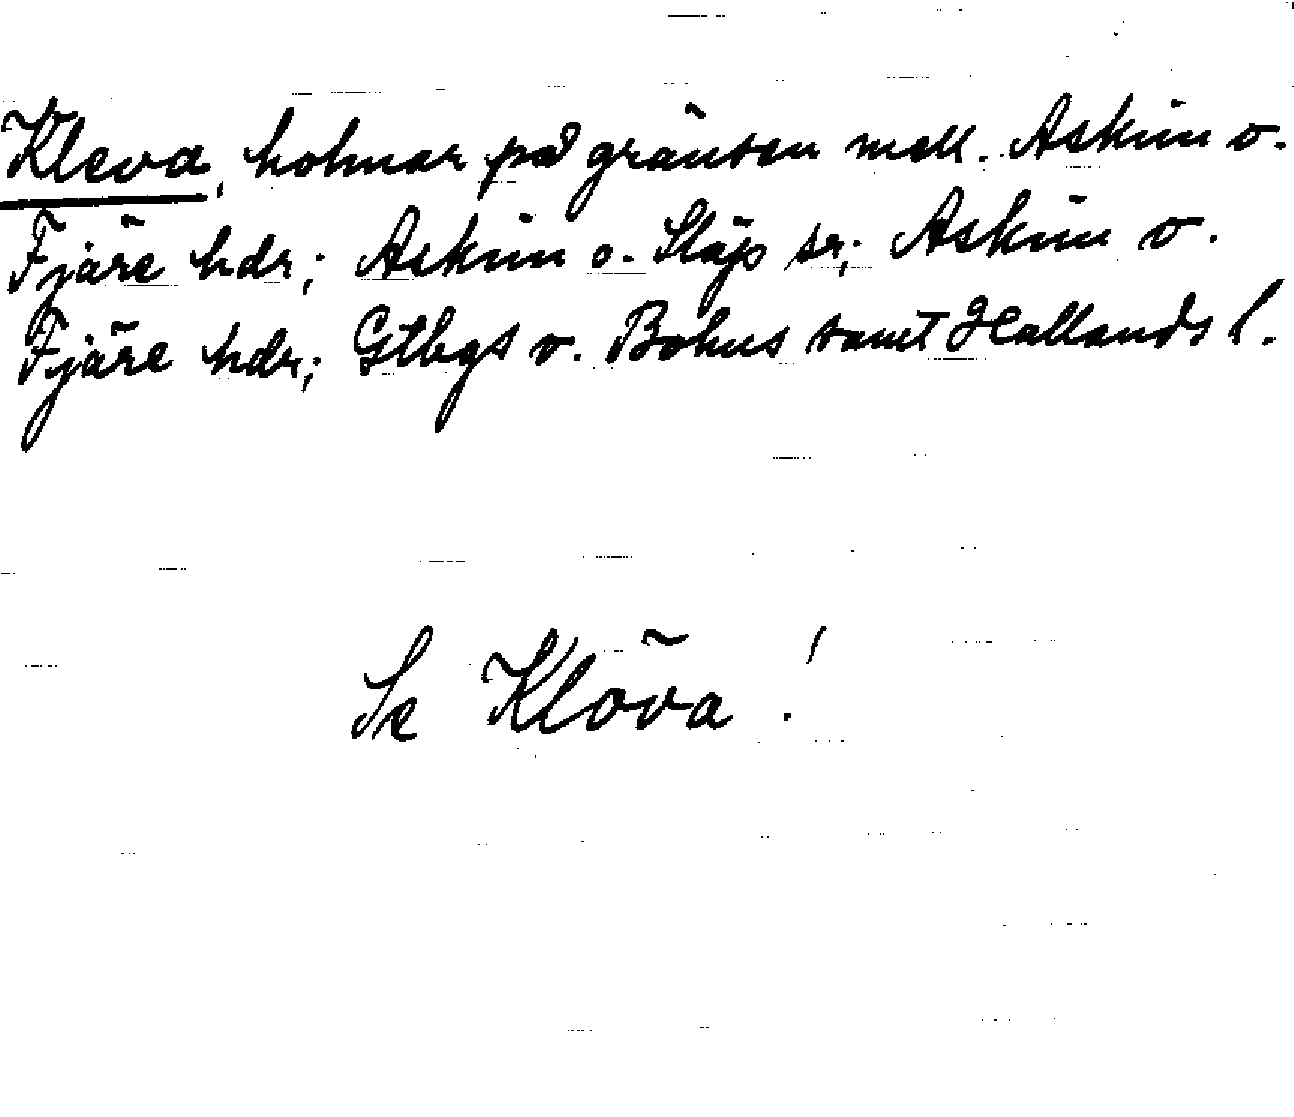 Kleva, holmar på gränsen mell. Askim o.
Fjäre hdr; Askim o. Släp sr; Askim o.
Fjäre hdr; Gtbgs o. Bohus samt Hallands l.
Se Klöva!